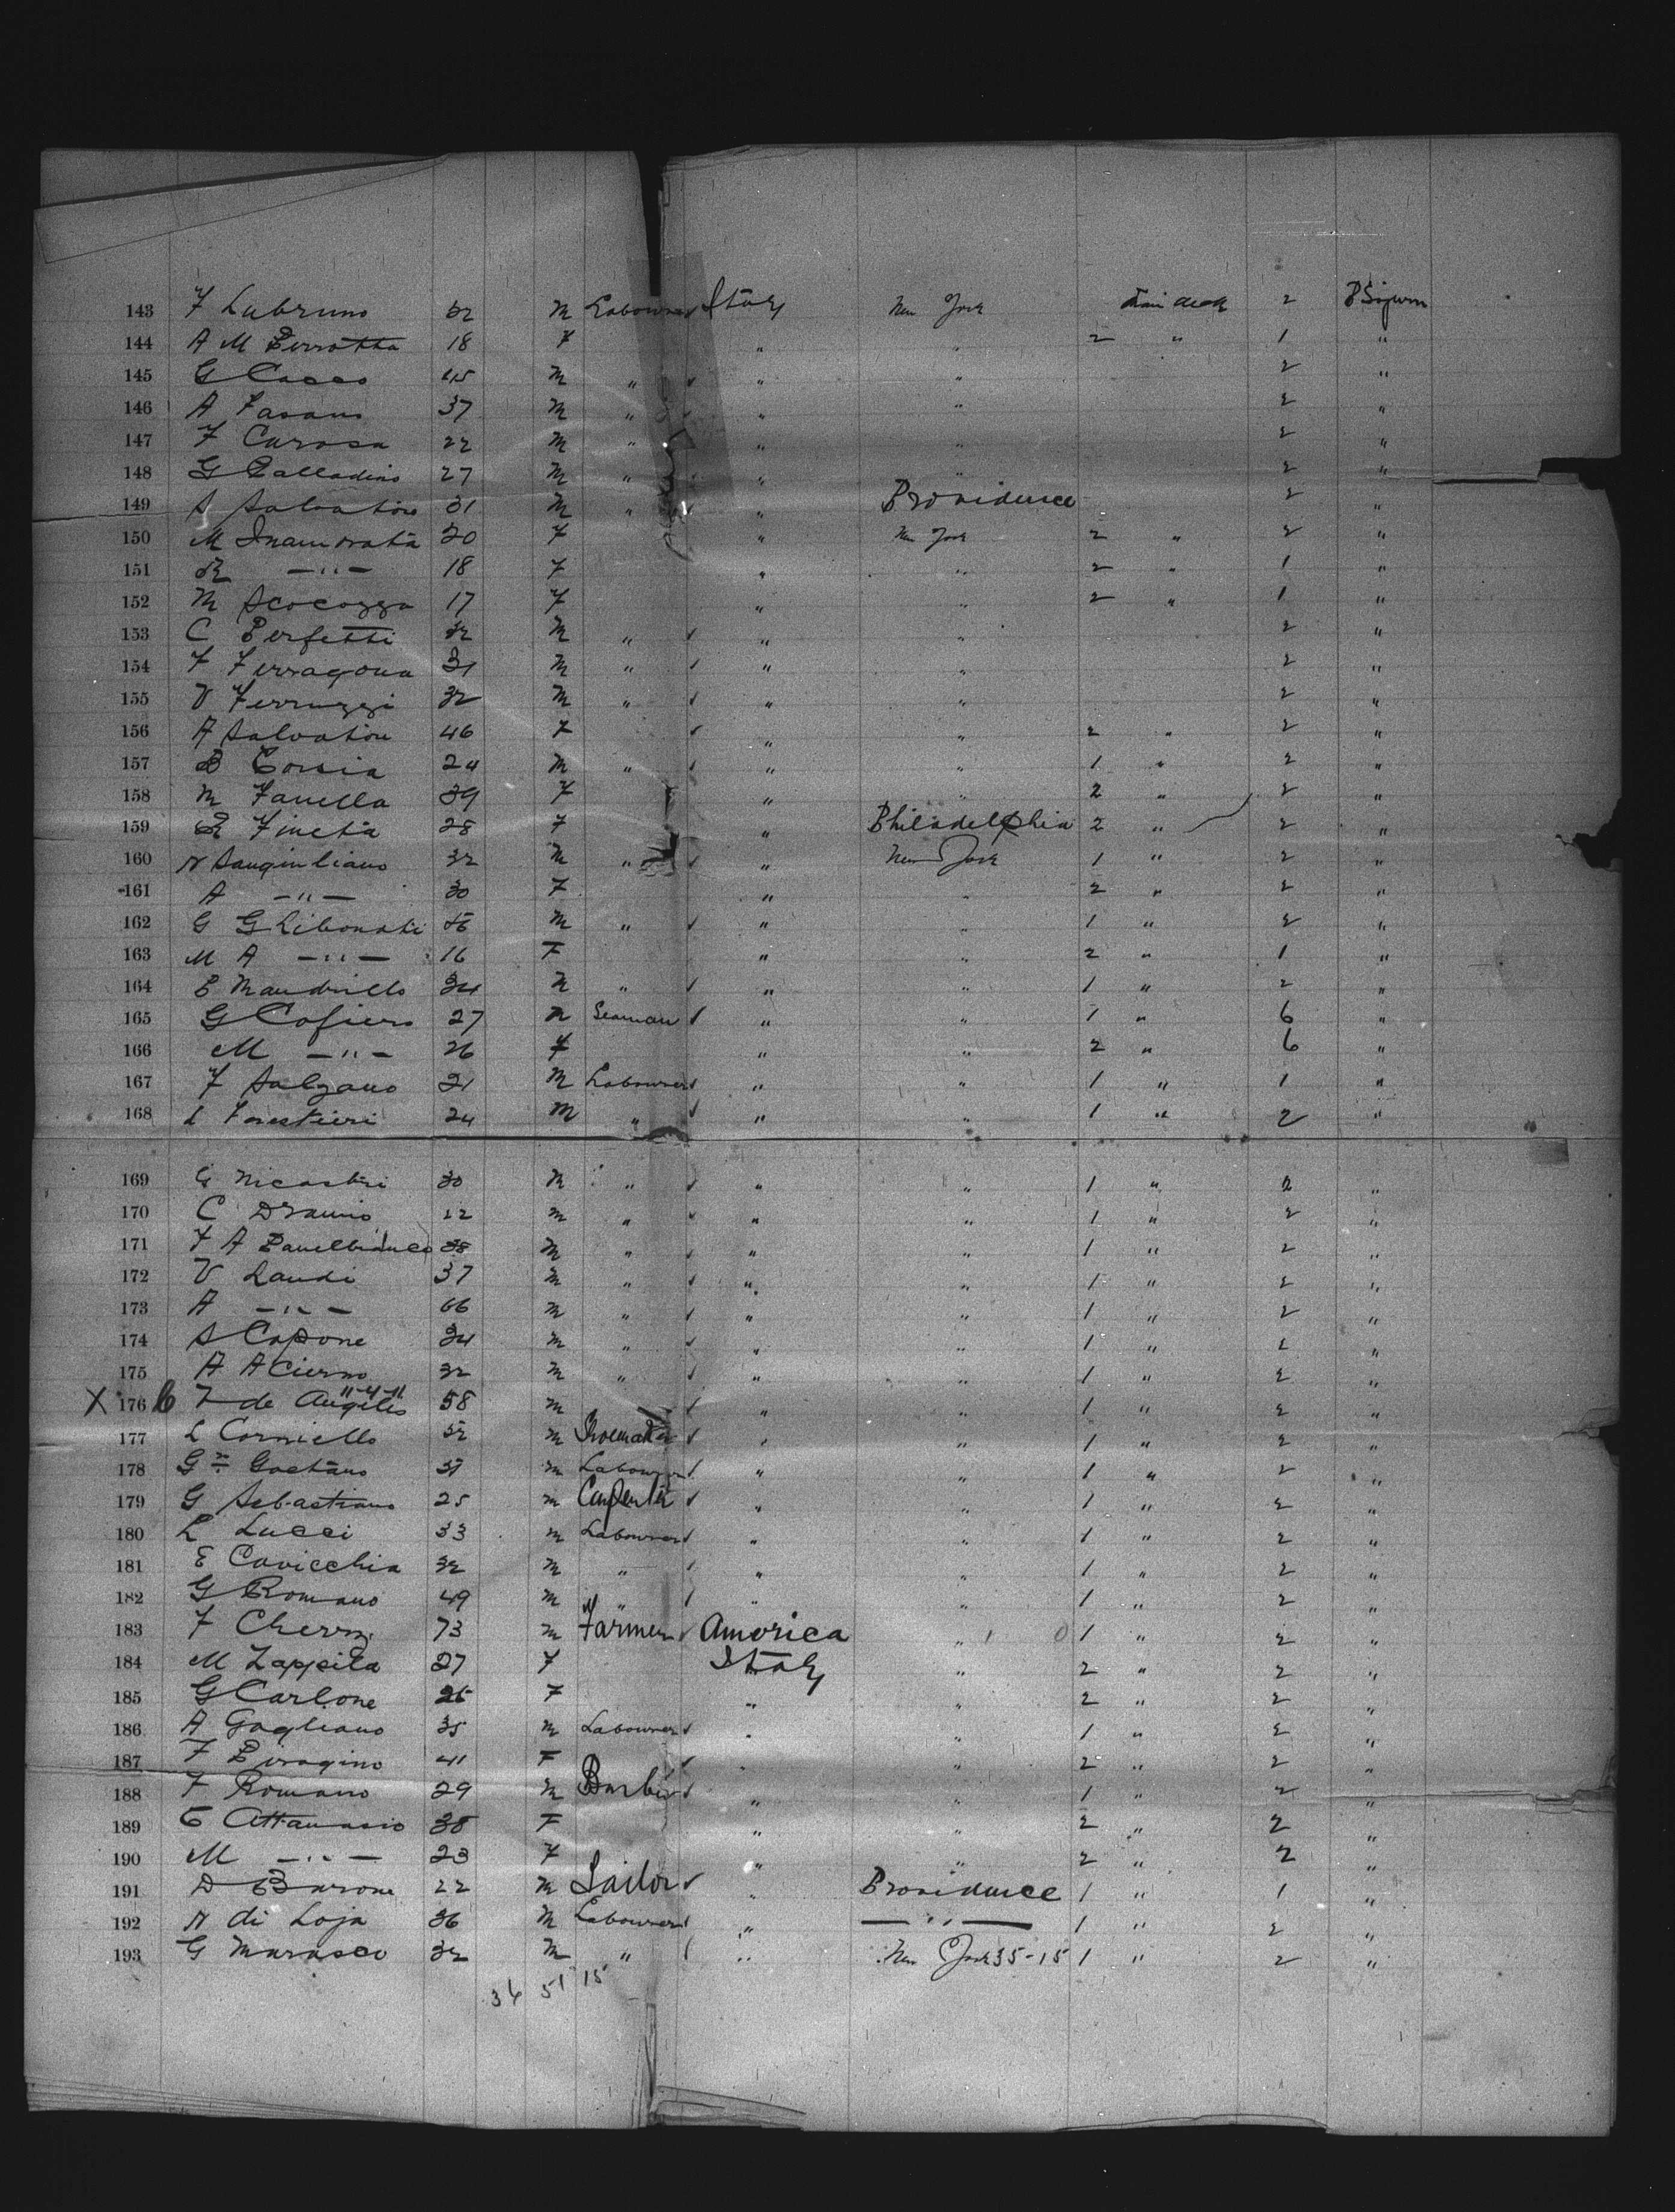 143 F Lubruno 32 M Labourer Italy New York Main deck 2 P Sojourn
144 A M Perrotta 18 F " " 2 " 1 "
145 G Cocco 45 M " " " 2 "
146 A Fasano 37 M " " " 2 "
147 F Carosa 22 M " " " 2 "
148 G Palladino 27 M " " " 2 "
149 S Salvatore 31 M " " Providence 2 "
150 M Inamorata 20 F " New York 2 " 2 "
151 R —"— 18 F " " 2 " 1 "
152 M Scocozza 17 F " " 2 " 1 "
153 C Perfetti 32 M " " " 2 "
154 F Ferragona 31 M " " " 2 "
155 V Ferruzzi 32 M " " " 2 "
156 A Salvatore 46 F " " 2 " 2 "
157 B Corsia 24 M " " " 1 " 2 "
158 M Fanella 39 F " " 2 " 2 "
159 R Fineta 28 F " Philadelphia 2 " 2 "
160 N Sangiuliano 32 M " " New York 1 " 2 "
161 A —"— 30 F " " 2 " 2 "
162 G G Libonati M " " " 1 " 2 "
163 M A —"— 16 F " " 2 " 1 "
164 P Mandrillo 34 M " " " 1 " 2 "
165 G Cafiero 27 M Seaman " " 1 " 6 "
166 M —"— 26 F " " 2 " 6 "
167 F Salzano 21 M Labourer " " 1 " 1 "
168 L Forestieri 24 M " " " 1 " 2 "
169 G Nicastri 30 M " " " 1 " 2 "
170 C Draunio 22 M " " " 1 " 2 "
171 F A Panebianco 38 M " " " 1 " 2 "
172 V Landi 37 M " " " 1 " 2 "
173 A —"— 66 M " " " 1 " 2 "
174 S Capone 34 M " " " 1 " 2 "
175 A A Cierno 32 M " " " 1 " 2 "
X 176 b F de Angelis 58 M " " 1 " 2 "
177 L Corniello 32 M Shoemaker " " 1 " 2 "
178 Gn Gaetano 37 M Labourer " " 1 " 2 "
179 G Sebastiano 25 M Carpenter " " 1 " 2 "
180 L Lucci 33 M Labourer " " 1 " 2 "
181 E Cavicchia 32 M " " " 1 " 2 "
182 G Romano 49 M " " " 1 " 2 "
183 F Cherry 73 M Farmer America " 1 0 1 " 2 "
184 M Zappita 27 F Italy " 2 " 2 "
185 G Carbone F " " 2 " 2 "
186 A Gagliano 35 M Labourer " " 1 " 2 "
187 F Piragino 41 F " " 2 " 2 "
188 F Romano 29 M Barber " " 1 " 2 "
189 C Attanasio 38 F " " 2 " 2 "
190 M —"— 23 F " " 2 " 2 "
191 D Barone 22 M Sailor " Providence 1 " 1 "
192 N di Loja 36 M Labourer " —"— 1 " 2 "
193 G Marasco 32 M " " New York 35-15 1 " 2 "
36 51 15